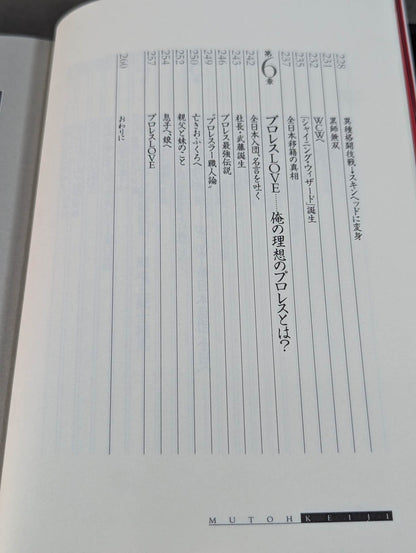 228 異種格闘技戦→スキンヘッドに変身
231 黒師無双
232 WCWへ
235 「シャイニング・ウィザード」誕生
237 全日本移籍の真相
第6章 プロレスLOVE……俺の理想のプロレスとは?
242 全日本入団、名言を吐く
243 社長・武藤誕生
246 プロレス最強伝説
249 "プロレスラー職人論"
250 亡きおふくろへ
252 親父と妹のこと
254 息子へ、娘へ
257 プロレスLOVE
260 おわりに
MUTOH KEIJI